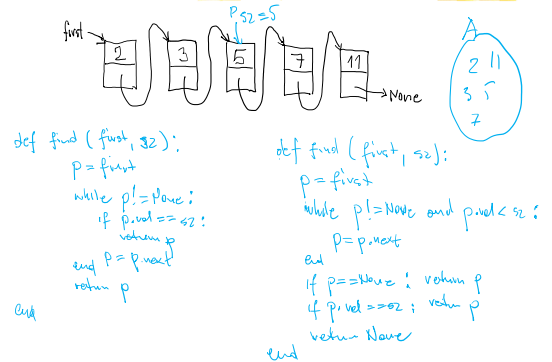 P sz=5
first
2 3 5 7 11
None
A
2 11
3 5
7
def find (first, sz):
p=first
while p!=None:
if p.val==sz:
return p
p=p.next
end
return p
end
def find (first, sz):
p=first
while p!=None and p.val<sz:
p=p.next
end
if p==None: return p
if p.val==sz: return p
return None
end